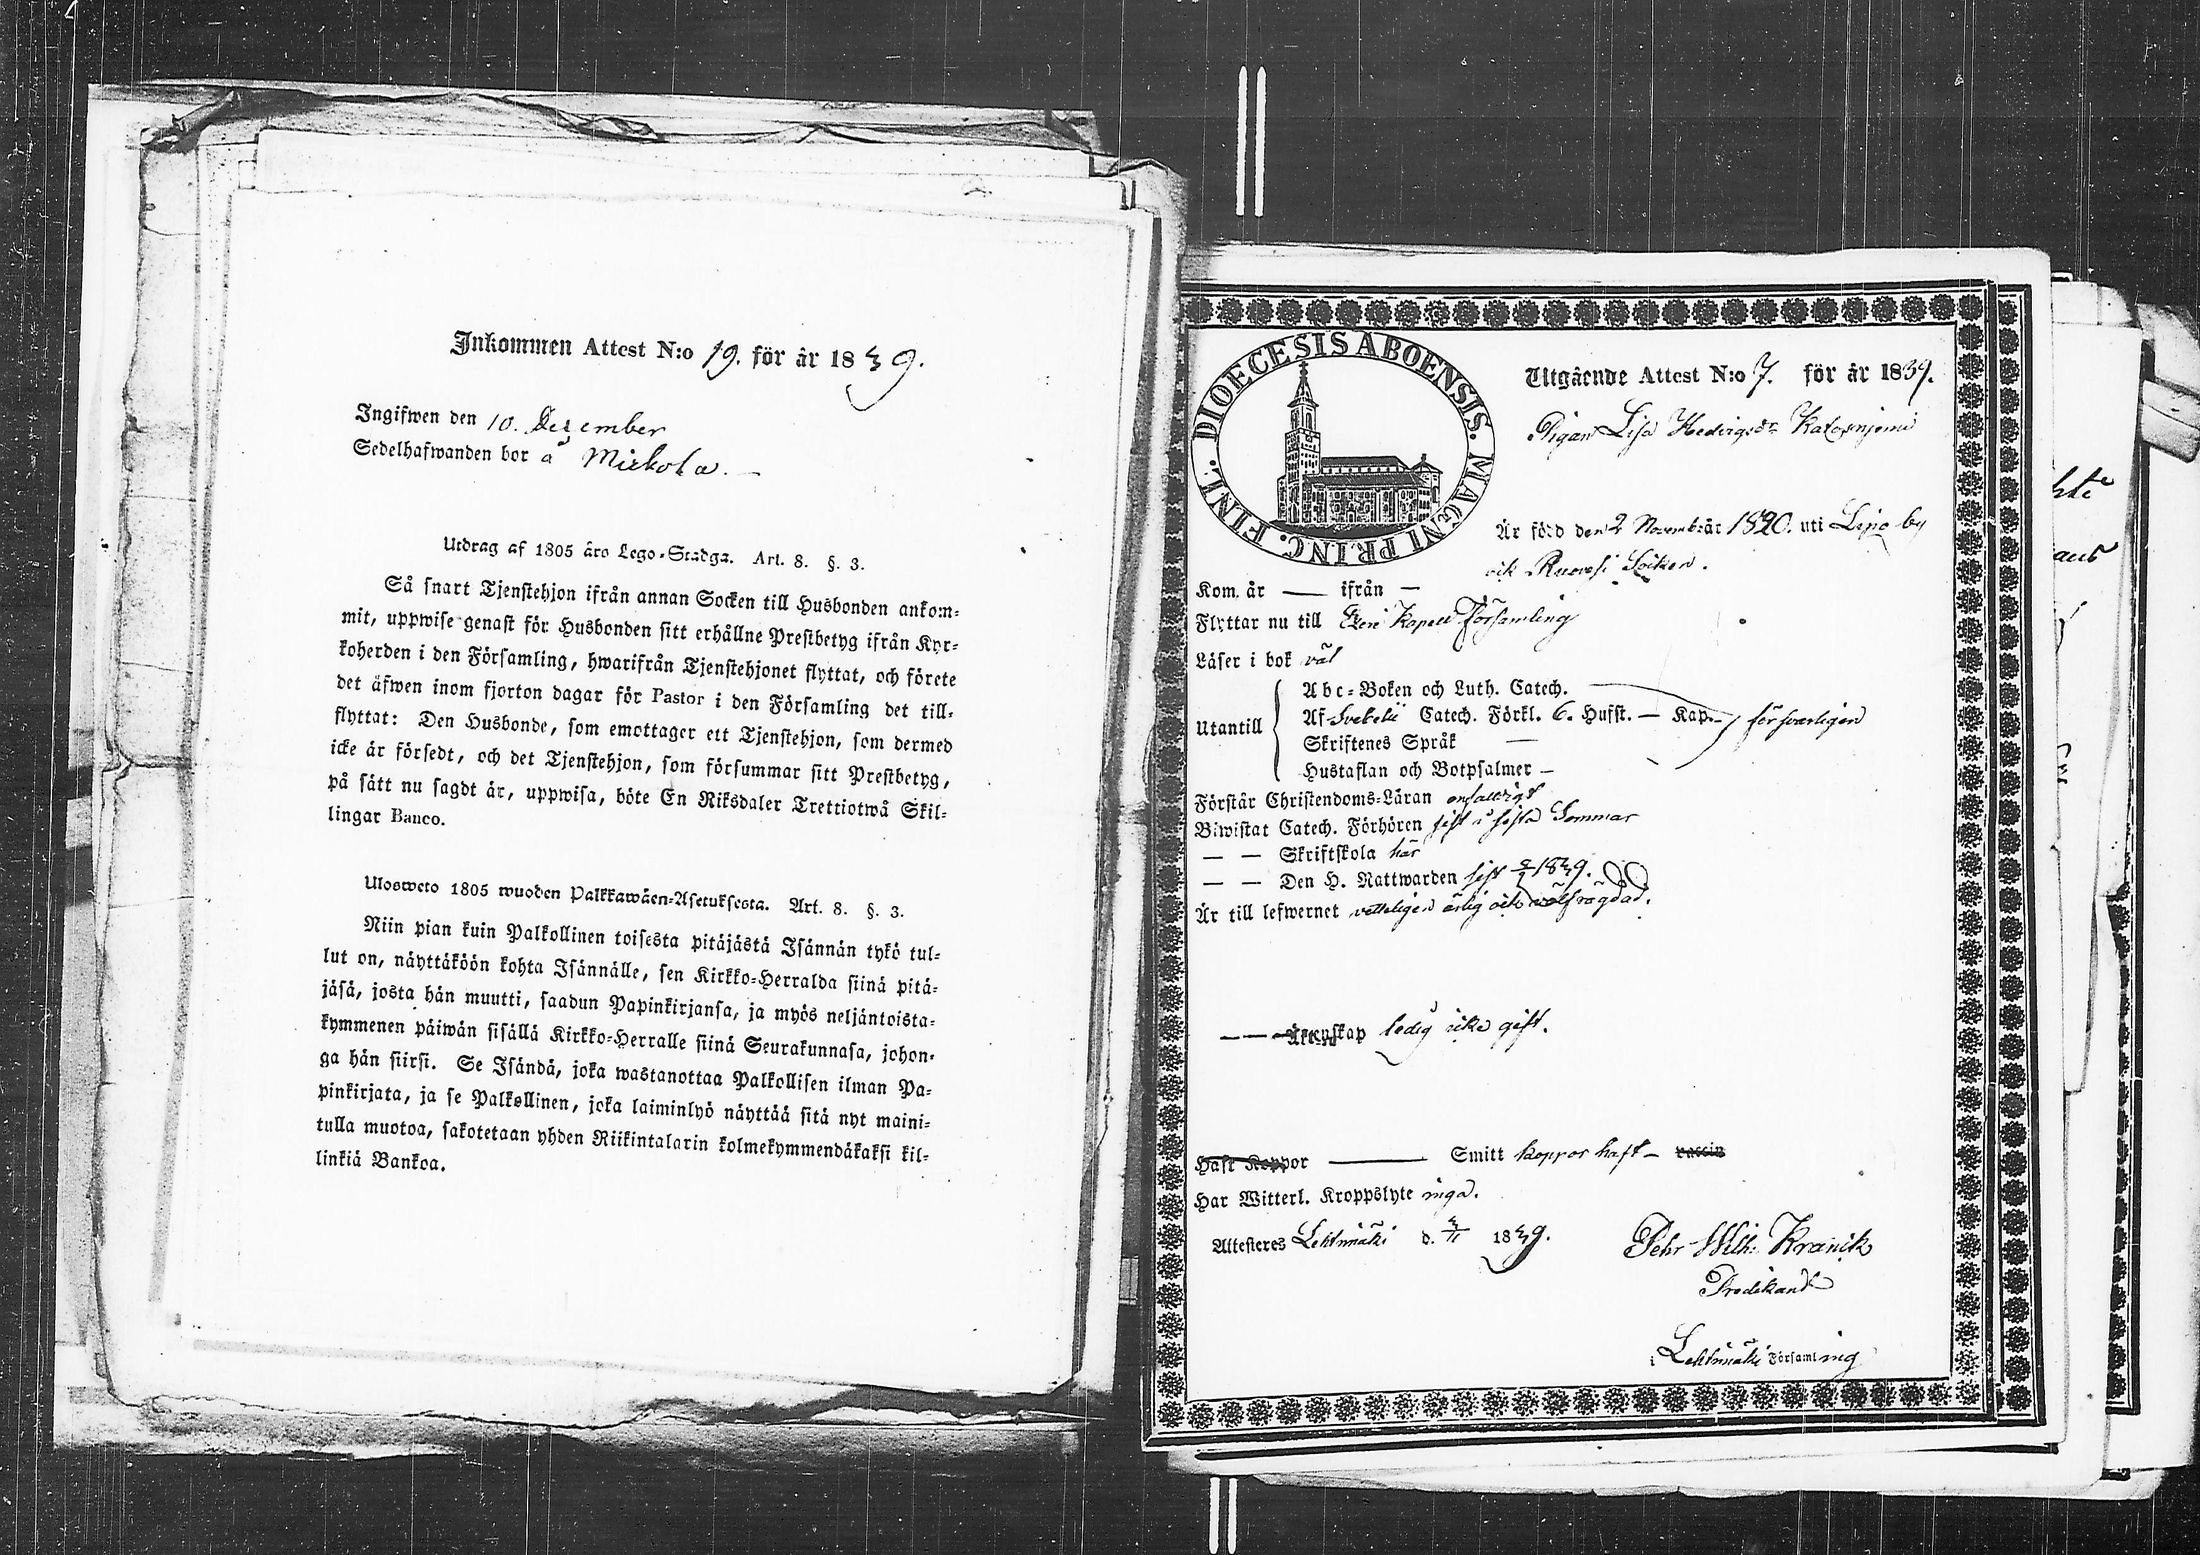 Inkommen Attest N:o 19. för år 1839.
Ingifwen den 10. December
Sedelhafwanden bor å Mickola. —
Utdrag af 1805 års Lego-Stadga. Art. 8. §. 3.
Så snart Tjenstehjon ifrån annan Socken till Husbonden ankom-
mit, uppwise genast för Husbonden sitt erhållne Prestbetyg ifrån Kyr-
koherden i den Församling, hwarifrån Tjenstehjonet flyttat, och förete
det äfwen inom fjorton dagar för Pastor i den Församling det till-
flyttat: Den Husbonde, som emottager ett Tjenstehjon, som dermed
icke är försedt, och det Tjenstehjon, som försummar sitt Prestbetyg,
på sätt nu sagdt är, uppwisa, böte En Riksdaler Trettiotwå Skil-
lingar Banco.
Ulosweto 1805 wuoden Palkkawäen-Asetuksesta. Art. 8. §. 3.
Niin pian kuin Palkollinen toisesta pitäjästä Isännän tykö tul-
lut on, näyttäköön kohta Isännälle, sen Kirkko-Herralda siinä pitä-
jäsä, josta hän muutti, saadun Papinkirjansa, ja myös neljäntoista-
kymmenen päiwän sisällä Kirkko-Herralle siinä Seurakunnasa, johon-
ga hän siirsi. Se Isändä, joka wastanottaa Palkollisen ilman Pa-
pinkirjata, ja se Palkollinen, joka laiminlyö näyttää sitä nyt maini-
tulla muotoa, sakotetaan yhden Riikintalarin kolmekymmendäkaksi kil-
linkiä Bankoa.
DIOECESIS ABOENSIS. MAGNI PRINC. FINL.
Utgående Attest N:o 7. för år 1839.
Pigan Lisa Hedvigsdr
Är född den 2 Novemb: år 1820. uti by
och Ruovesi Socken.
Kom. år — ifrån —
Flyttar nu till Kapell Församling
Läser i bok väl
Utantill
Abc-Boken och Luth. Catech.
Af Svebelii Catech. Förkl. 6. Hufst. — Kap. — försvarligen
Skriftenes Språk —
Hustaflan och Botpsalmer —
Förstår Christendoms-Läran enfaldigt
Biwistat Catech. Förhören sist å sista Sommar
— — Skriftskola här
— — Den H. Nattwarden sist 1839.
Är till lefwernet ärlig och välfrägdad.
— — Äktenskap ledig icke gift.
Haft Koppor — Smitt koppor haft — vaccin
Har Witterl. Kroppslyte inga.
Attesteres Lehtimäki d. 1839.
Pehr Wilh: Kranck
Predikant
i Lehtimäki Församling